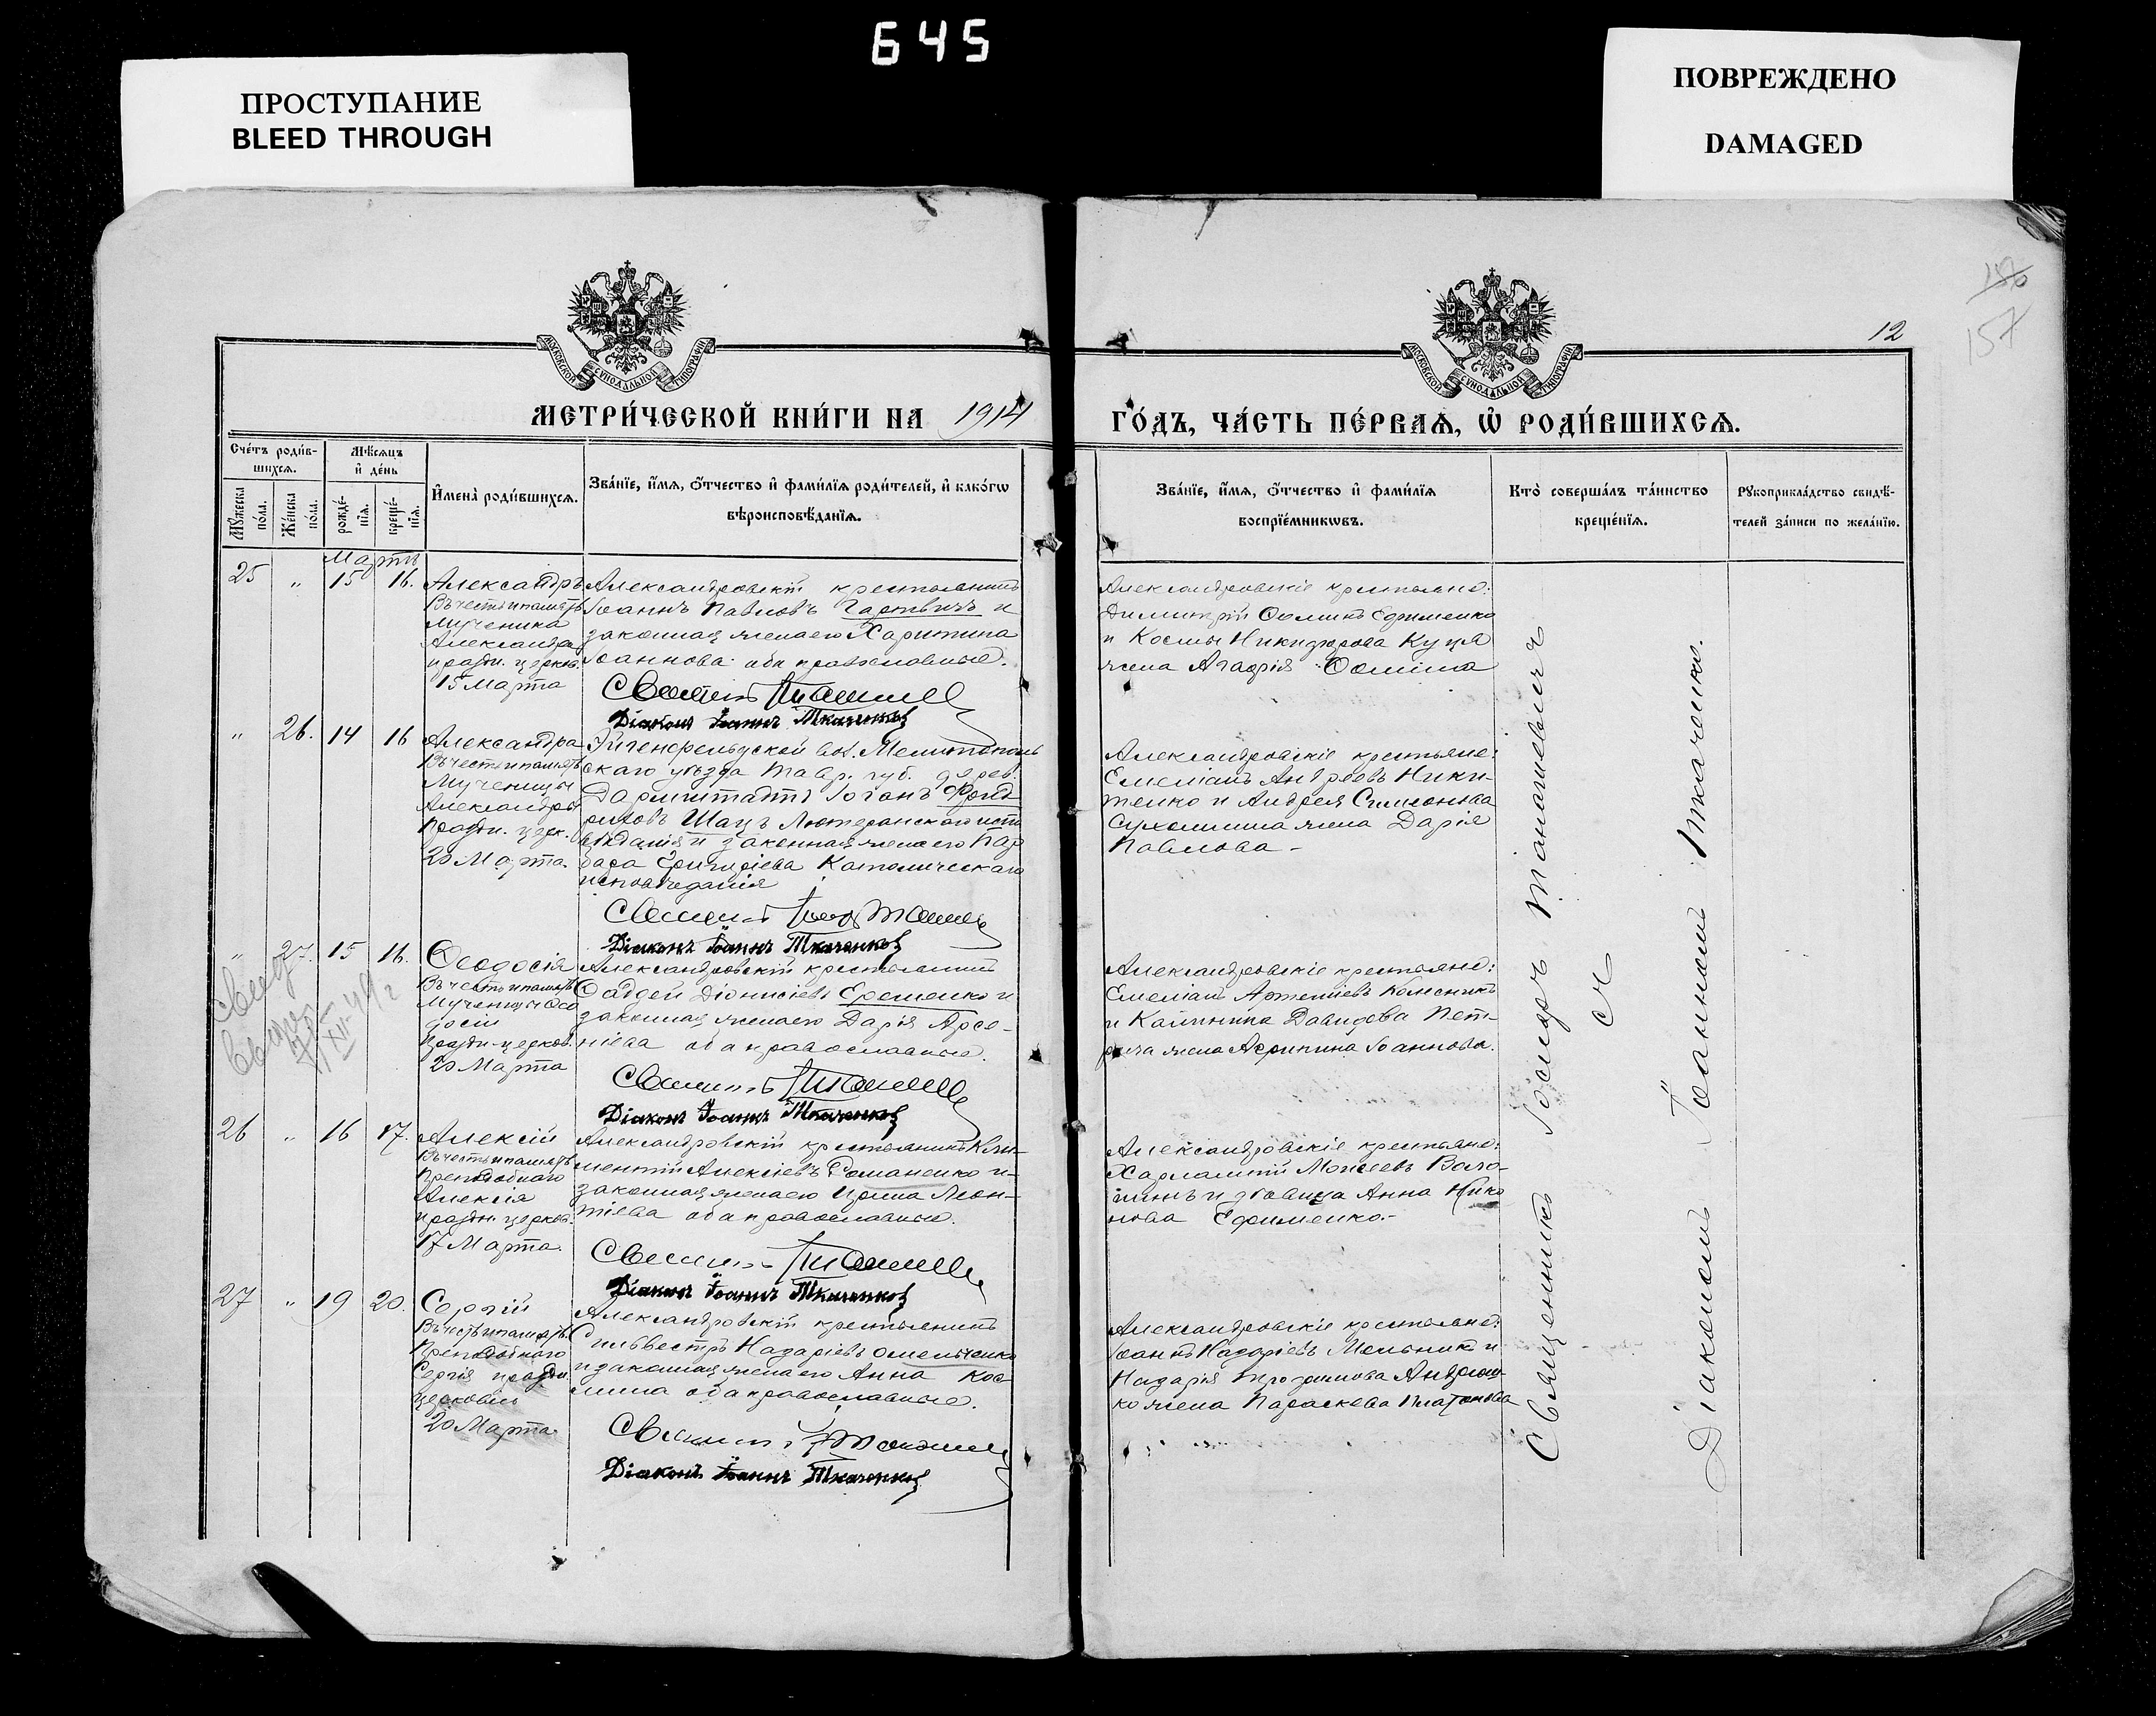 645
ПРОСТУПАНИЕ
BLEED THROUGH
ПОВРЕЖДЕНО
DAMAGED
156
157
12
МОСКОВСКОЙ СѴНОДАЛЬНОЙ ТИПОГРАФІИ
МОСКОВСКОЙ СѴНОДАЛЬНОЙ ТИПОГРАФІИ
МЕТРИ́ЧЕСКОЙ КНИ́ГИ НА 1914
ГО́ДЪ, ЧА́СТЬ ПЕ́РВАѦ, Ѡ҆ РОДИ́ВШИХСѦ.
Счетъ роди́в-
шихсѧ.
Мѣ́сѧцъ
и҆ де́нь
Мꙋ́жеска
по́ла.
Же́нска
по́ла.
рожде́-
нїѧ.
креще́-
нїѧ.
И҆мена̀ роди́вшихсѧ.
Зва́нїе, и҆́мѧ, ѻ҆́тчество и҆ фами́лїѧ роди́телей, и҆ како́гѡ
вѣроисповѣ́данїѧ.
Зва́нїе, и҆́мѧ, ѻ҆́тчество и҆ фами́лїѧ
воспрїе́мникѡвъ.
Кто̀ соверша́лъ та́инство
креще́нїѧ.
Рꙋкоприкла́дство свидѣ́-
телей за́писи по жела́нїю.
Мартъ
25 " 15 16.
Александръ
Въ честь и память
мученика
Александра
праздн. церков.
15 Марта
Александровскій крестьянинъ
Іоаннъ Павловъ Гартвичъ и
законная жена его Харитина
Іоаннова оба православные.
Діаконъ Іоаннъ Ткаченко
Александровскіе крестьяне:
Димитрій Ѳоминъ Ефименко
и Космы Никифорова Куця
жена Агафія Ѳомина
" 26. 14 16
Александра
Въ честь и память
Мученицы
Александры
Праздн. церк.
20 Марта.
Эйгенфельдской вол. Мелитополь
скаго уѣзда Тавр. губ. дерев.
Дармштадтъ Іоганъ Фрид
риховъ Шацъ Лютеранскаго испо
вѣданія и законная жена его Вар
вара Григоріева Католическаго
исповѣданія
Діаконъ Іоаннъ Ткаченко
Александровскіе крестьяне:
Емеліанъ Андреевъ Ники-
тенко и Андрея Симонова
Сухомлина жена Дарія
Павлова -
" 27. 15 16.
Ѳеодосія
Въ честь и память
Мученицы Ѳео
досіи
Праздн. церков.
20 Марта
Александровскій крестьянинъ
Ѳаддей Діонисіевъ Еременко и
законная жена его Дарія Арсе-
ніева оба православные.
Діаконъ Іоаннъ Ткаченко
Александровскіе крестьяне:
Емеліанъ Артеміевъ Колесникъ
и Каллиника Давидова Пет-
рича жена Агрипина Іоаннова.
26 " 16 17.
Алексій
Въ честь и память
Преподобнаго
Алексія
праздн. церков.
17 Марта.
Александровскій крестьянинъ Кли-
ментій Алексіевъ Романенко и
законная жена его Ирина Леон-
тіева оба православные.
Діаконъ Іоаннъ Ткаченко
Александровскіе крестьяне:
Харлампій Моисеевъ Воло-
шинъ и вдовица Анна Нико
нова Ефименко.-
27 " 19 20.
Сергій
Въ честь и память
Преподобнаго
Сергія праздн.
церковію
20 Марта.
Александровскій крестьянинъ
Сильвестръ Назаріевъ Омельченко
и законная жена его Анна Кос-
мина оба православные.
Діаконъ Іоаннъ Ткаченко
Александровскіе крестьяне:
Іоаннъ Назаріевъ Мельникъ и
Назарія жена Параскева Платонова
Священникъ Іосифъ
съ
Діакономъ Іоанномъ Ткаченко.